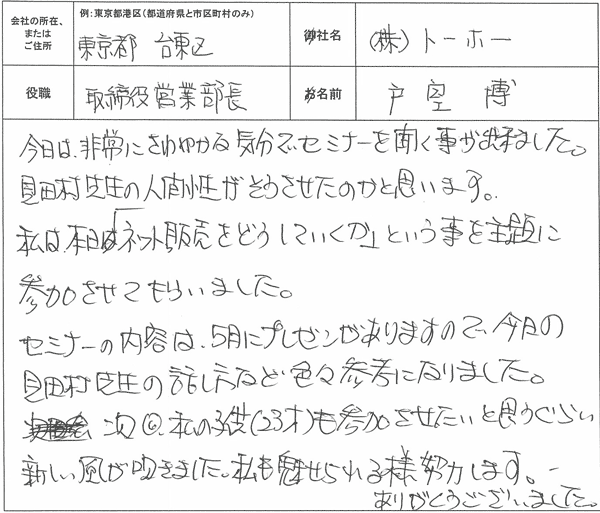 会社の所在、またはご住所
例：東京都港区（都道府県と市区町村のみ）
東京都 台東区
御社名
(株)トーホー
役職
取締役営業部長
お名前
戸室 博
今日は、非常にさわやかな気分でセミナーを聞く事が出来ました。
貝田村先生の人間性がそうさせたのかと思います。
私は、本日は「ネット販売をどうしていくか」という事を主題に
参加させてもらいました。
セミナーの内容は、5月にプレゼンがありますので、今日の
貝田村先生の話し方など色々参考になりました。
次回、私の子供(23才)も参加させたいと思うぐらい
新しい風が吹きました。私も魅せられる様、努力します。
ありがとうございました。